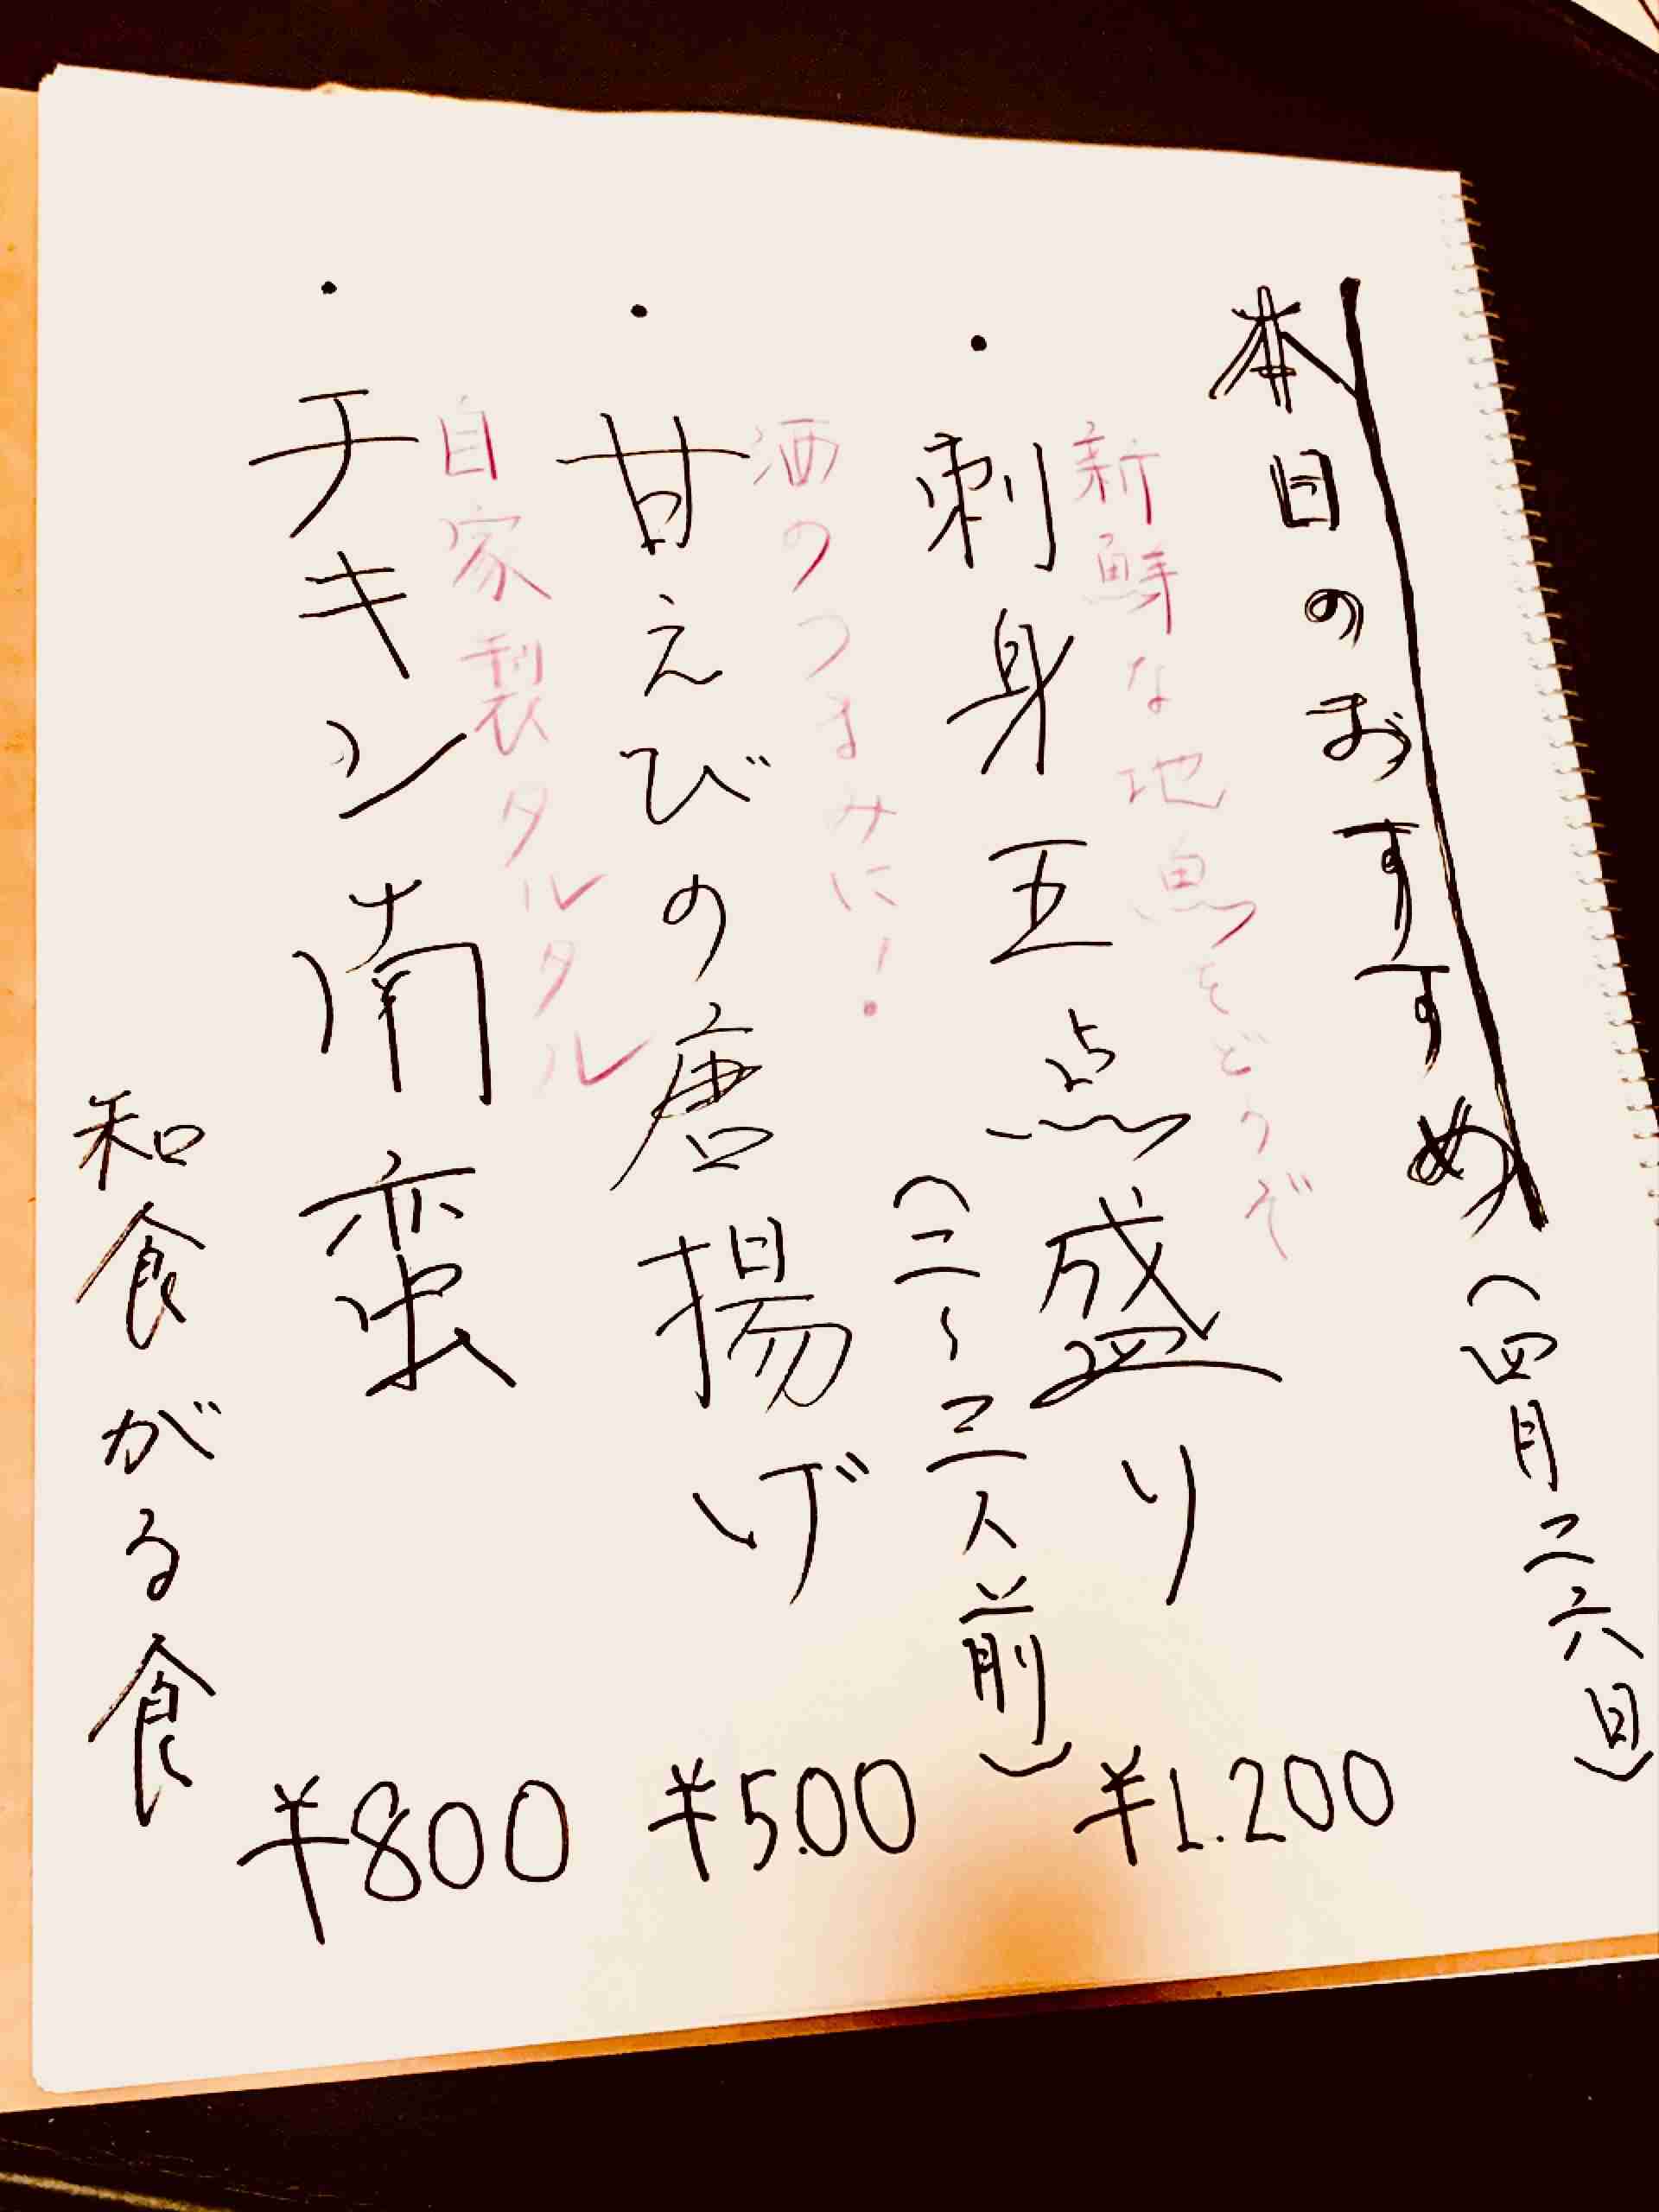 本日のおすすめ(四月二六日)
新鮮な地魚をどうぞ
・刺身五点盛り
(二~三人前)
¥1.200
酒のつまみに!
・甘えびの唐揚げ
¥500
自家製タルタル
・チキン南蛮
¥800
和食がる食